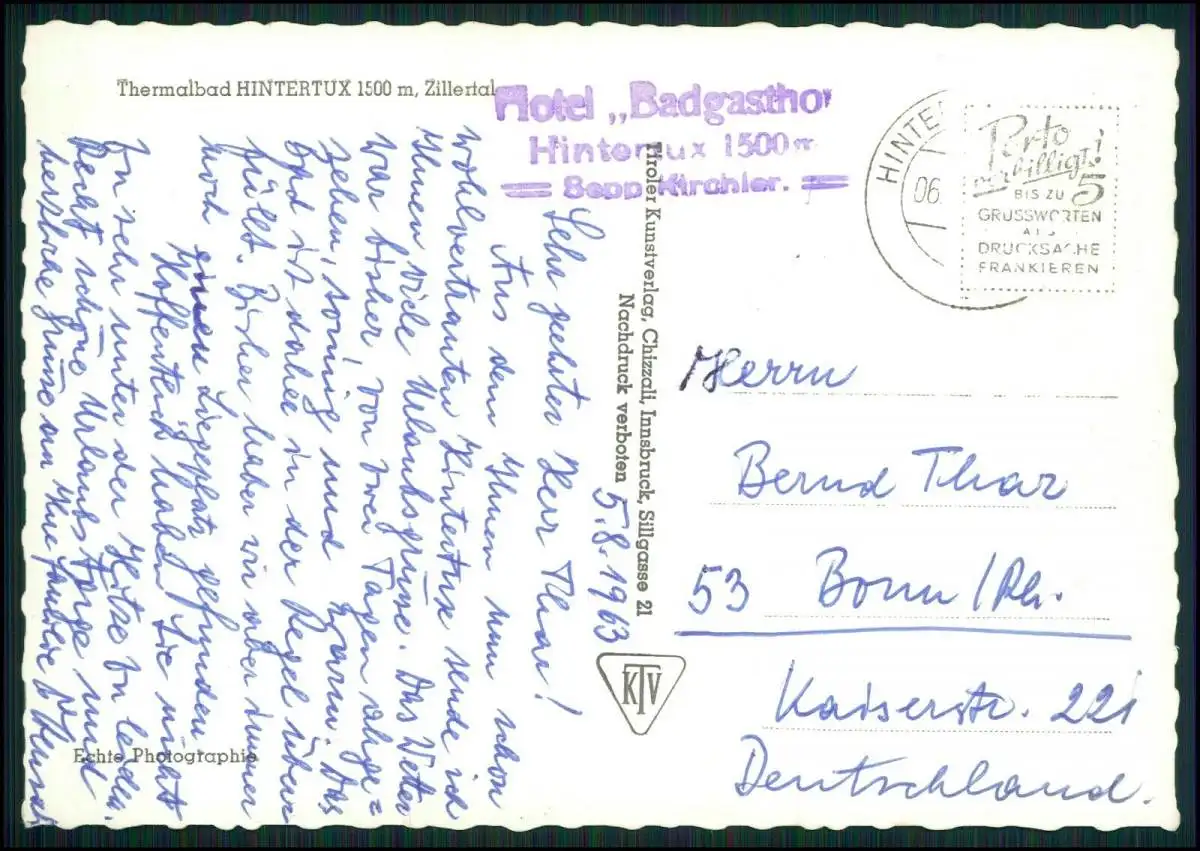 Thermalbad HINTERTUX 1500 m, Zillertal
Hotel „Badgasthof
Hintertux 1500 m
Sepp Kirchler.
HINTE
06.
Porto
verbilligt!
BIS ZU 5
GRUSSWORTEN
ALS
DRUCKSACHE
FRANKIEREN
5.8.1963
Sehr geehrter Herr Thar!
Aus dem Ihnen nun schon
wohlvertrauten Hintertux sende ich
Ihnen viele Urlaubsgrüsse. Das Wetter
war bisher von zwei Tagen abge=
sehen, sonnig und warm. Das
Bad ist daher in der Regel über=
füllt. Bisher haben wir aber immer
noch einen Liegeplatz gefunden
Hoffentlich haben Sie nicht
zu sehr unter der Hitze zu leiden.
Recht schöne Urlaubstage und
herzliche Grüsse an Ihre
Tiroler Kunstverlag, Chizzali, Innsbruck, Sillgasse 21
Nachdruck verboten
KTV
Echte Photographie
Herrn
Bernd Thar
53 Bonn/Rh.
Kaiserstr. 221
Deutschland.